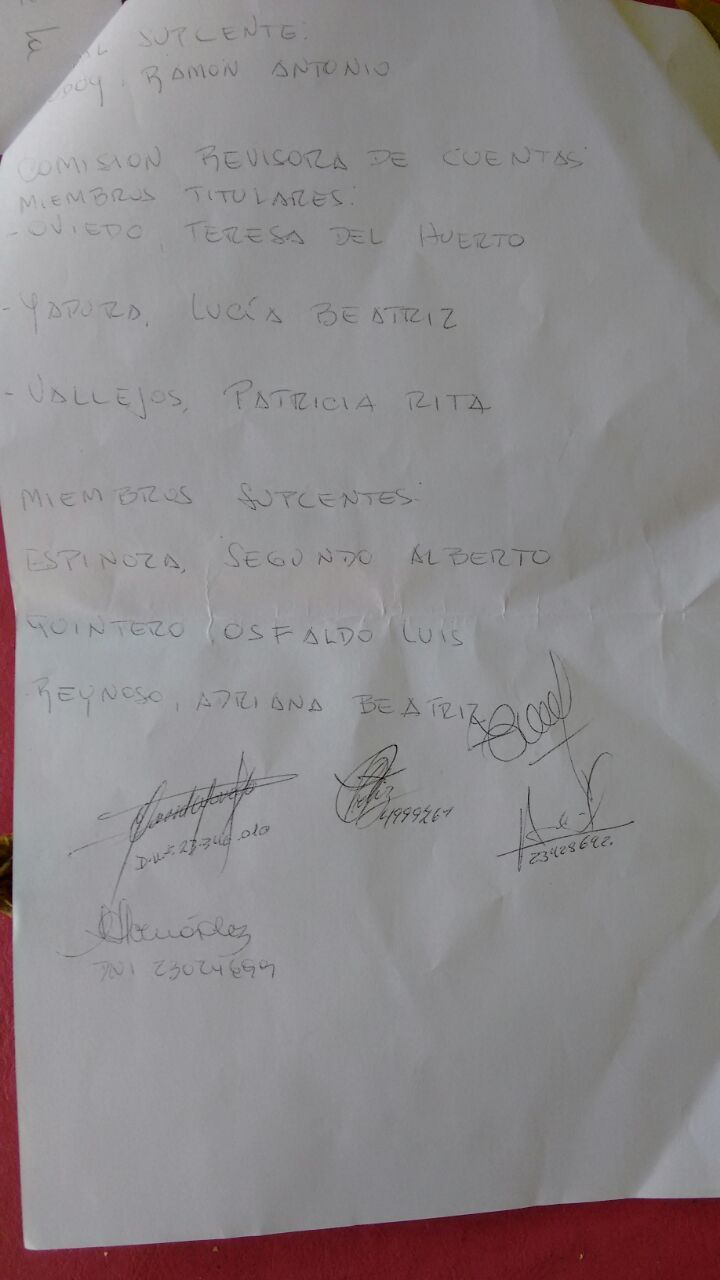 AL SUPLENTE:
RAMÓN ANTONIO
COMISION REVISORA DE CUENTAS
MIEMBROS TITULARES:
-OVIEDO, TERESA DEL HUERTO
-YAPURA, LUCÍA BEATRIZ
-VALLEJOS, PATRICIA RITA
MIEMBROS SUPLENTES:
ESPINOZA, SEGUNDO ALBERTO
QUINTERO, OSFALDO LUIS
-REYNOSO, ADRIANA BEATRIZ
D.N.I. 23.346.010
23428692.
DNI 23024699